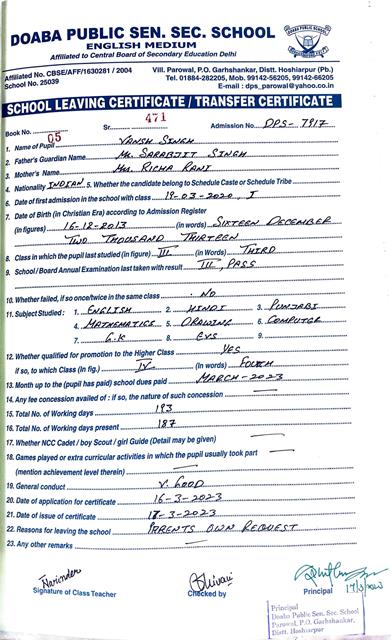 DOABA PUBLIC SEN. SEC. SCHOOL
ENGLISH MEDIUM
Affiliated to Central Board of Secondary Education Delhi
Affiliated No. CBSE/AFF/1630281 / 2004
School No. 25039
Vill. Parowal, P.O. Garhshankar, Distt. Hoshiarpur (Pb.)
Tel. 01884-282205, Mob. 99142-56205, 99142-66205
E-mail : dps_parowal@yahoo.co.in
SCHOOL LEAVING CERTIFICATE / TRANSFER CERTIFICATE
Book No. 05 Sr. 471 Admission No. DPS-7917
1. Name of Pupil VANSH SINGH
2. Father's Guardian Name MR. SARABJIT SINGH
3. Mother's Name MRS. RICHA RANI
4. Nationality INDIAN 5. Whether the candidate belong to Schedule Caste or Schedule Tribe
6. Date of first admission in the school with class 19-03-2020, I
7. Date of Birth (in Christian Era) according to Admission Register
(in figures) 16-12-2013 (in words) SIXTEEN DECEMBER
TWO THOUSAND THIRTEEN
8. Class in which the pupil last studied (in figure) III (in Words) THIRD
9. School / Board Annual Examination last taken with result III, PASS
10. Whether failed, if so once/twice in the same class NO
11. Subject Studied : 1. ENGLISH 2. HINDI 3. PUNJABI
4. MATHEMATICS 5. DRAWING 6. COMPUTER
7. G.K 8. EVS 9.
12. Whether qualified for promotion to the Higher Class YES
if so, to which Class (In fig.) IV (In words) FOURTH
13. Month up to the (pupil has paid) school dues paid MARCH-2023
14. Any fee concession availed of : if so, the nature of such concession
15. Total No. of Working days 193
16. Total No. of Working days present 187
17. Whether NCC Cadet / boy Scout / girl Guide (Detail may be given)
18. Games played or extra curricular activities in which the pupil usually took part
(mention achievement level therein)
19. General conduct V. GOOD
20. Date of application for certificate 16-3-2023
21. Date of issue of certificate 17-3-2023
22. Reasons for leaving the school PARENTS OWN REQUEST
23. Any other remarks
Narinder
Shivani
Signature of Class Teacher Checked by Principal
Principal
Doaba Public Sen. Sec. School
Parowal, P.O. Garhshankar,
Distt. Hoshiarpur